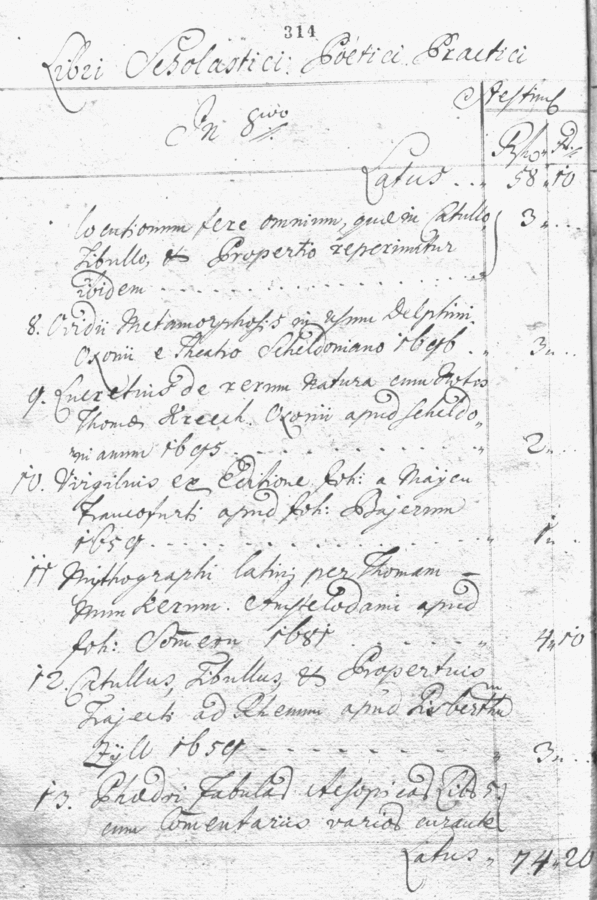 314
Libri Scholastici: Poëtici Practici
Æstim
In 8vo
Latus . . 58 „ 10
locutionum fere omnium, quæ in Catullo, 3 „
Tibullo, & Propertio reperiuntur
ibidem
8. Ovidii Metamorphosis in usum Delphini
Oxonii e Theatro Scheldoniano 1696 . 3 „
9. Lucretius de rerum Natura cum Notis
Thomæ Kreech. Oxonii apud Scheldo„
anum 1695 2 „
10. Virgilius ex Editione Joh: a Mayen
Francofurti apud Joh: Bajerum
1659 1 „
11 Mithographi latini per Thomam
Munkerum. Amstelodami apud
Joh: Someren 1681 4 „ 10
12. Catullus, Tibullus, & Propertius
Trajecti ad Rhenum apud Gisbertum
Zyll 1659 3 „
13. Phædri Fabulæ Aesopicæ Lib: 5.
cum Comentariis varior curante
Latus „ 74 „ 20